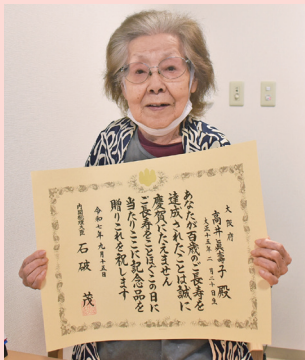 大阪府
高井眞壽子 殿
大正十五年 二月二十日生
あなたが百歳のご長寿を
達成されたことは誠に
慶賀にたえません
ご長寿をことほぐこの日に
当たりここに記念品を
贈りこれを祝します
令和七年九月十五日
内閣総理大臣 石破 茂